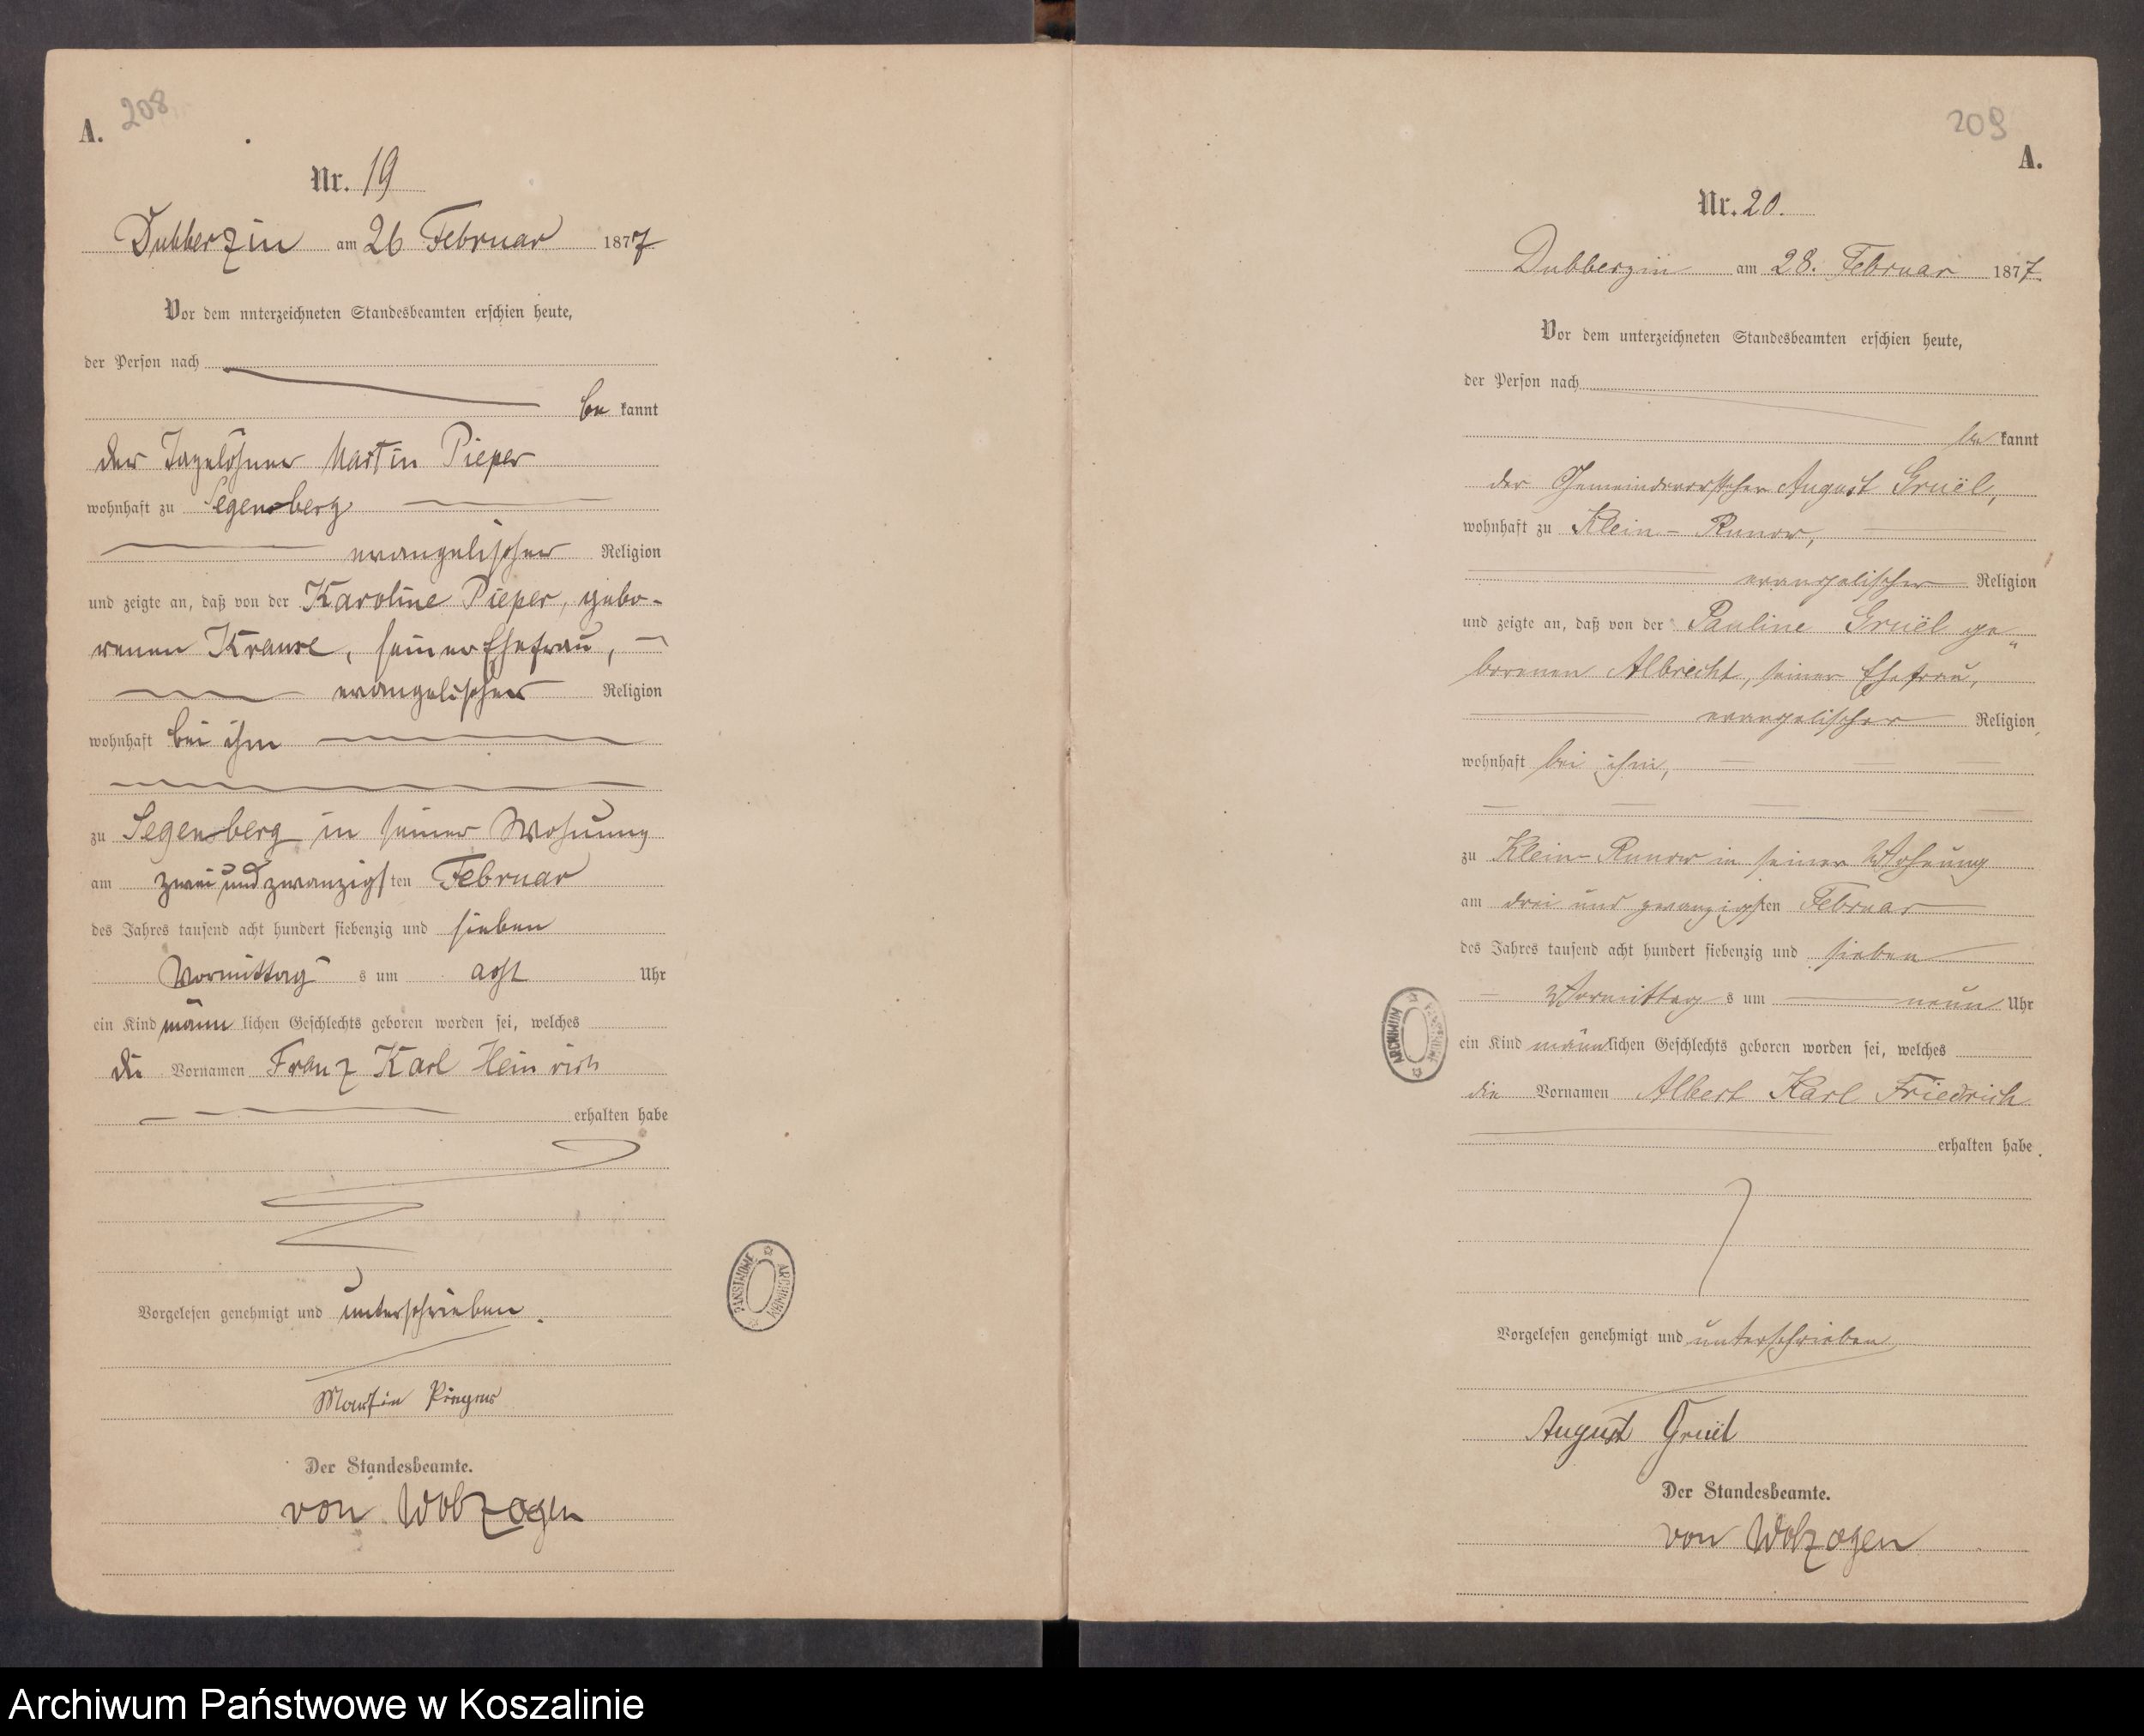 A.
208
Nr. 19
Dubberzin am 26 Februar 1877
Vor dem unterzeichneten Standesbeamten erschien heute,
der Person nach
be kannt
der Tagelöhner Martin Pieper
wohnhaft zu Segensberg
evangelischer Religion
und zeigte an, daß von der Karoline Pieper, gebo-
renen Krause, seiner Ehefrau,
evangelischer Religion
wohnhaft bei ihm
zu Segensberg in seiner Wohnung
am zwei und zwanzigsten Februar
des Jahres tausend acht hundert siebenzig und sieben
Vormittag s um acht Uhr
ein Kind männ lichen Geschlechts geboren worden sei, welches
die Vornamen Franz Karl Heinrich
erhalten habe
Vorgelesen genehmigt und unterschrieben.
Martin Pieper
Der Standesbeamte.
von Wolzogen
PAŃSTWOWE ARCHIWUM
209
A.
Nr. 20.
Dubberzin am 28. Februar 1877.
Vor dem unterzeichneten Standesbeamten erschien heute,
der Person nach
be kannt
der Gemeindevorsteher August Gruël,
wohnhaft zu Klein-Runow,
evangelischer Religion
und zeigte an, daß von der Pauline Gruël ge„
borenen Albrecht, seiner Ehefrau,
evangelischer Religion,
wohnhaft bei ihm,
zu Klein-Runow in seiner Wohnung
am drei und zwanzigsten Februar
des Jahres tausend acht hundert siebenzig und sieben
Vormittag s um neun Uhr
ein Kind männlichen Geschlechts geboren worden sei, welches
die Vornamen Albert Karl Friedrich
erhalten habe.
Vorgelesen genehmigt und unterschrieben
August Gruël
Der Standesbeamte.
von Wolzogen
ARCHIWUM PAŃSTWOWE
Archiwum Państwowe w Koszalinie